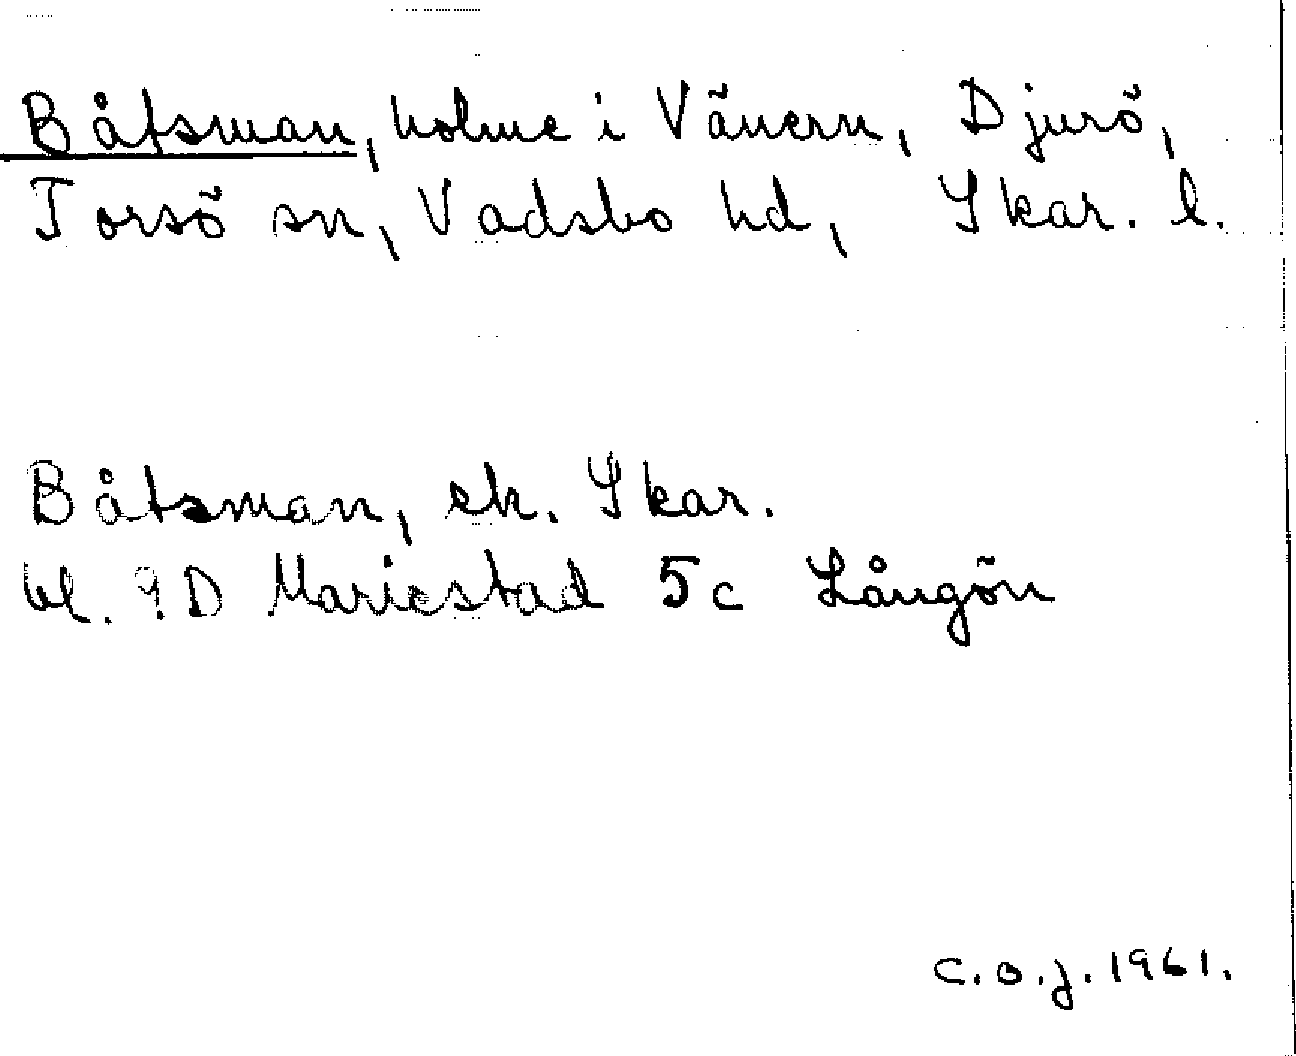 Båtsman, holme i Vänern, Djurö,
Torsö sn, Vadsbo hd, Skar. l.
Båtsman, ek. Skar.
bl. 9D Mariestad 5c Långön
C.O.J. 1961.